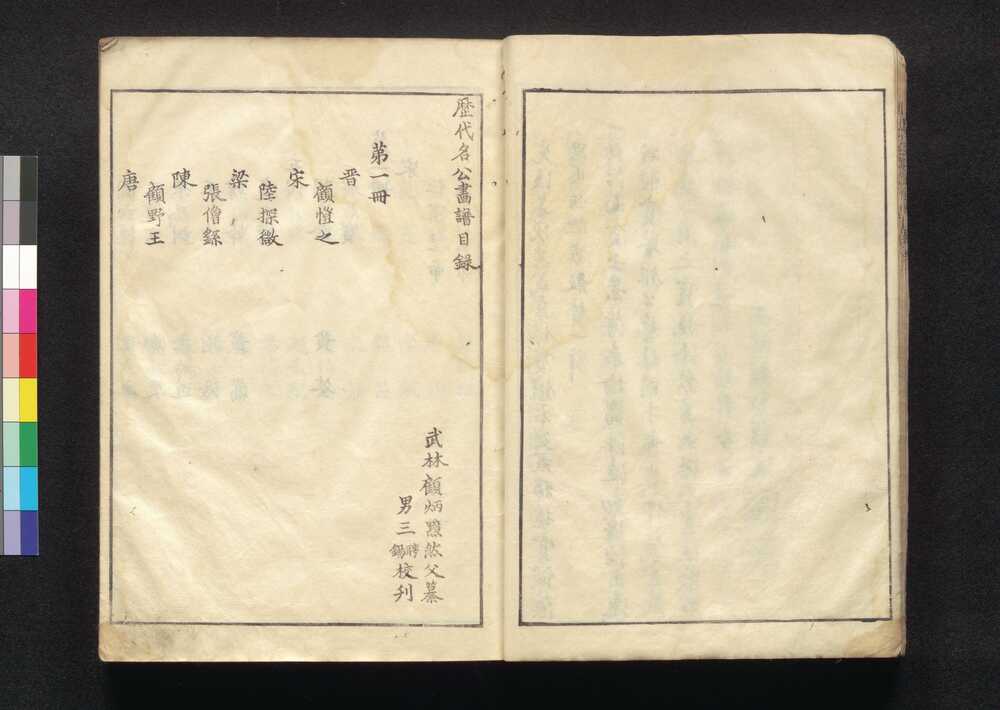 歷代名公畫譜目錄
武林顧炳黯然父摹
男三聘錫校刋
第一冊
晋
顧愷之
宋
陸探微
梁
張僧繇
陳
顧野王
唐